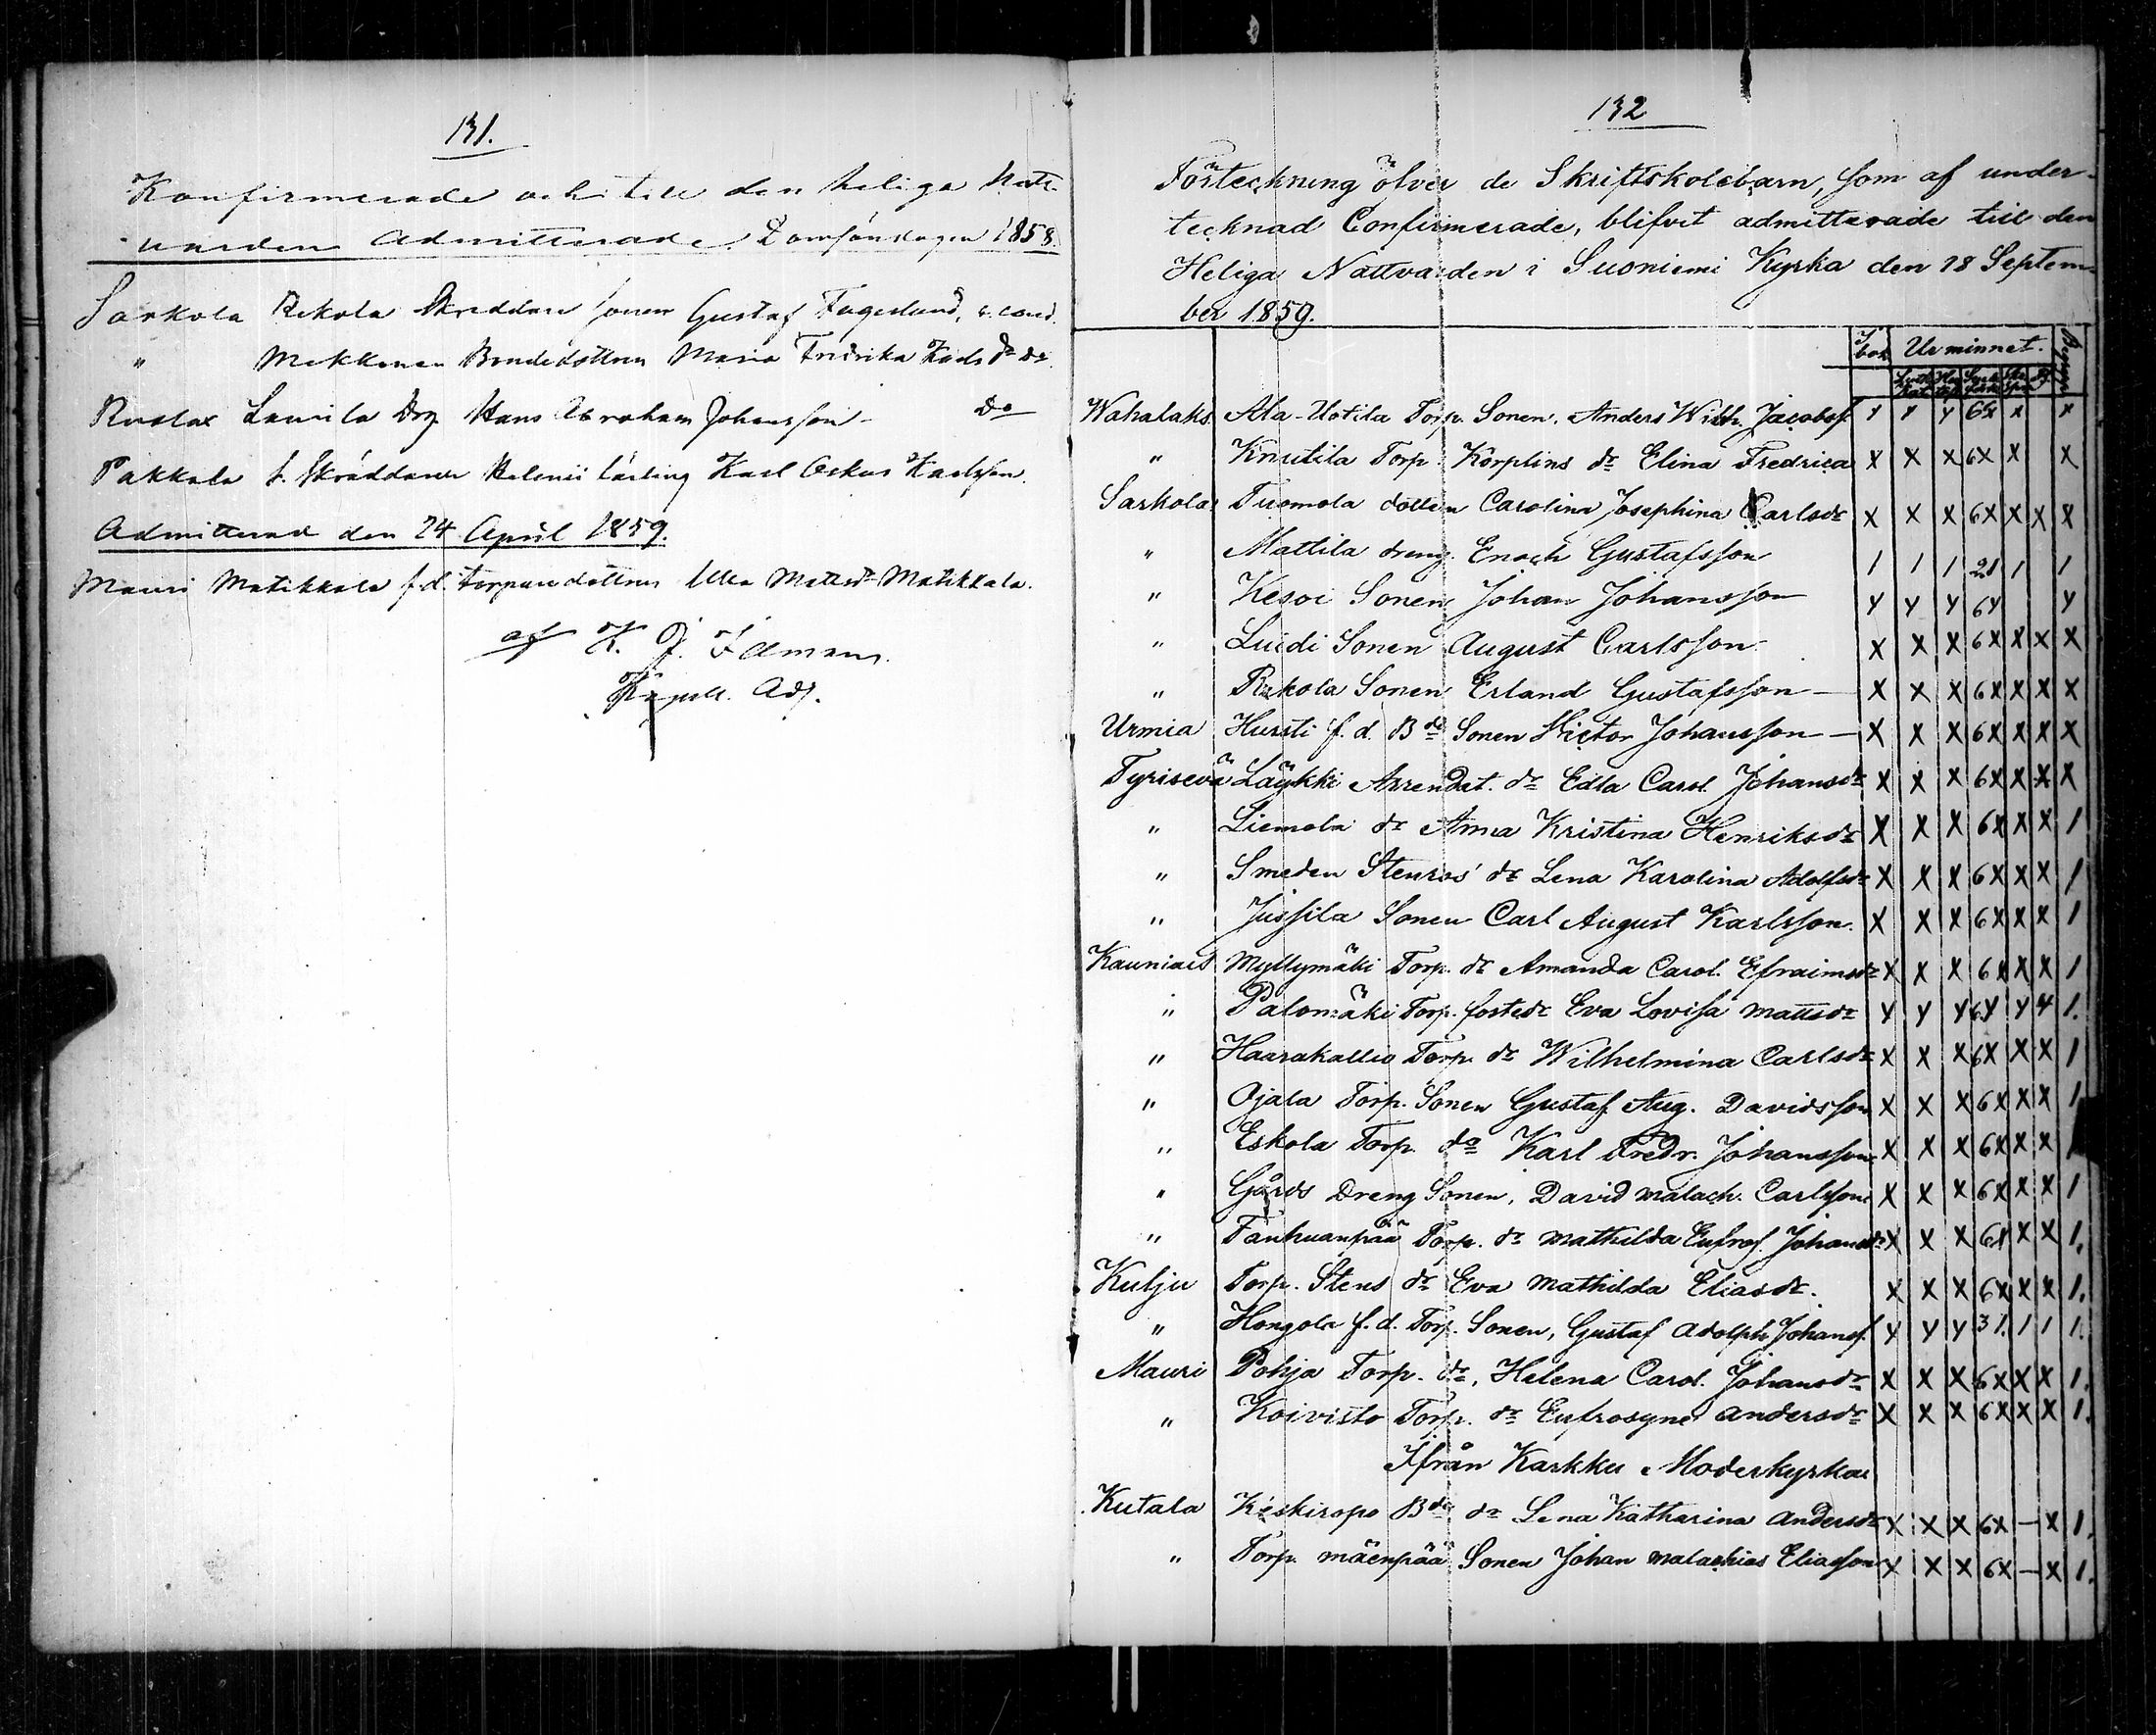 131.
Konfirmerade och till den heliga Natt-
varden Admitterade Domsöndagen 1858.
Sarkola Rekola Skreddare Sonen Gustaf Fagerlund, s. cond.
" Mekkonen Bondedottren Maria Fredrika Karlsdr do.
Lamila Drg Hans Abraham Johansson do
Pakkala f. Skräddaren lärling Karl Oskar Karlsson.
Admitterad den 24 April 1859.
Mauri Matikkala f.d. torparedottren Ulla Mattsdr Matikkala.
af K. J.
Kapell. Adj.
132
Förteckning öfver de Skriftskolebarn, som af under-
tecknad Confirmerade, blifvit admitterade till den
Heliga Nattvarden i Suoniemi Kyrka den 18 Septem-
ber 1859.
I bok Ur minnet. Begrep
Wahalaks Ala-Uotila Torp. Sonen, Anders Wilh. Jacobss. x x y 6x x x
" Knutila Torp. Körplins dr Elina Fredrica x x x 6x x x
Sarkola Tuomola dottren Carolina Josephina Carlsdr x x x 6x x x x
" Mattila dreng. Enoch Gustafsson 1 1 1 21 1 1
" Kesoi Sonen Johan Johansson y y y 6y y
" Luidi Sonen August Carlsson x x x 6x x x x
" Rekola Sonen Erland Gustafsson — x x x 6x x x x
Urmia Hursti f. d. Bde Sonen Victor Johansson — x x x 6x x x x
Tyrisevä Läykki Arrendat. dr Edla Carol. Johansdr x x x 6x x x x
" Liemola dr Anna Kristina Henriksdr x x x 6x x x 1
" Smeden Stenros' dr Lena Karolina Adolfsdr x x x 6x x x 1
" Jussila Sonen Carl August Karlsson. x x x 6x x x 1
Kauniais Myllymäki Torp. dr Amanda Carol. Efraimsdr x x x 6x x x 1
" Palomäki Torp. fosterdr Eva Lovisa Mattsdr y y y 6y y 4 1.
" Haarakallio Torp. dr Wilhelmina Carlsdr x x x 6x x x 1
" Ojala Torp. Sonen Gustaf Aug. Davidsson x x x 6x x x 1
" Eskola Torp. do Karl Fredr. Johansson x x x 6x x x
" Gårds Dreng Sonen, David Malach. Carlsson x x x 6x x x 1
" Tanhuanpää Torp. dr Mathilda Eufros. Johansdr x x x 6x x x 1.
Kulju Torp. Stens dr Eva Mathilda Eliasdr. x x x 6x x x 1.
" Hongola f. d. Torp. Sonen, Gustaf Adolph Johanss. y y y 31. 1 1 1.
Mauri Pohja Torp. dr, Helena Carol. Johansdr x x x 6x x x 1.
" Koivisto Torp. dr Eufrosyne Andersdr x x x 6x x x 1.
Ifrån Karkku Moderkyrka
Kutala Keskiropo Bde dr Lena Katharina Andersdr x x x 6x — x 1.
" Torp. Mäenpää Sonen Johan Malachias Eliasson x x x 6x — x 1.